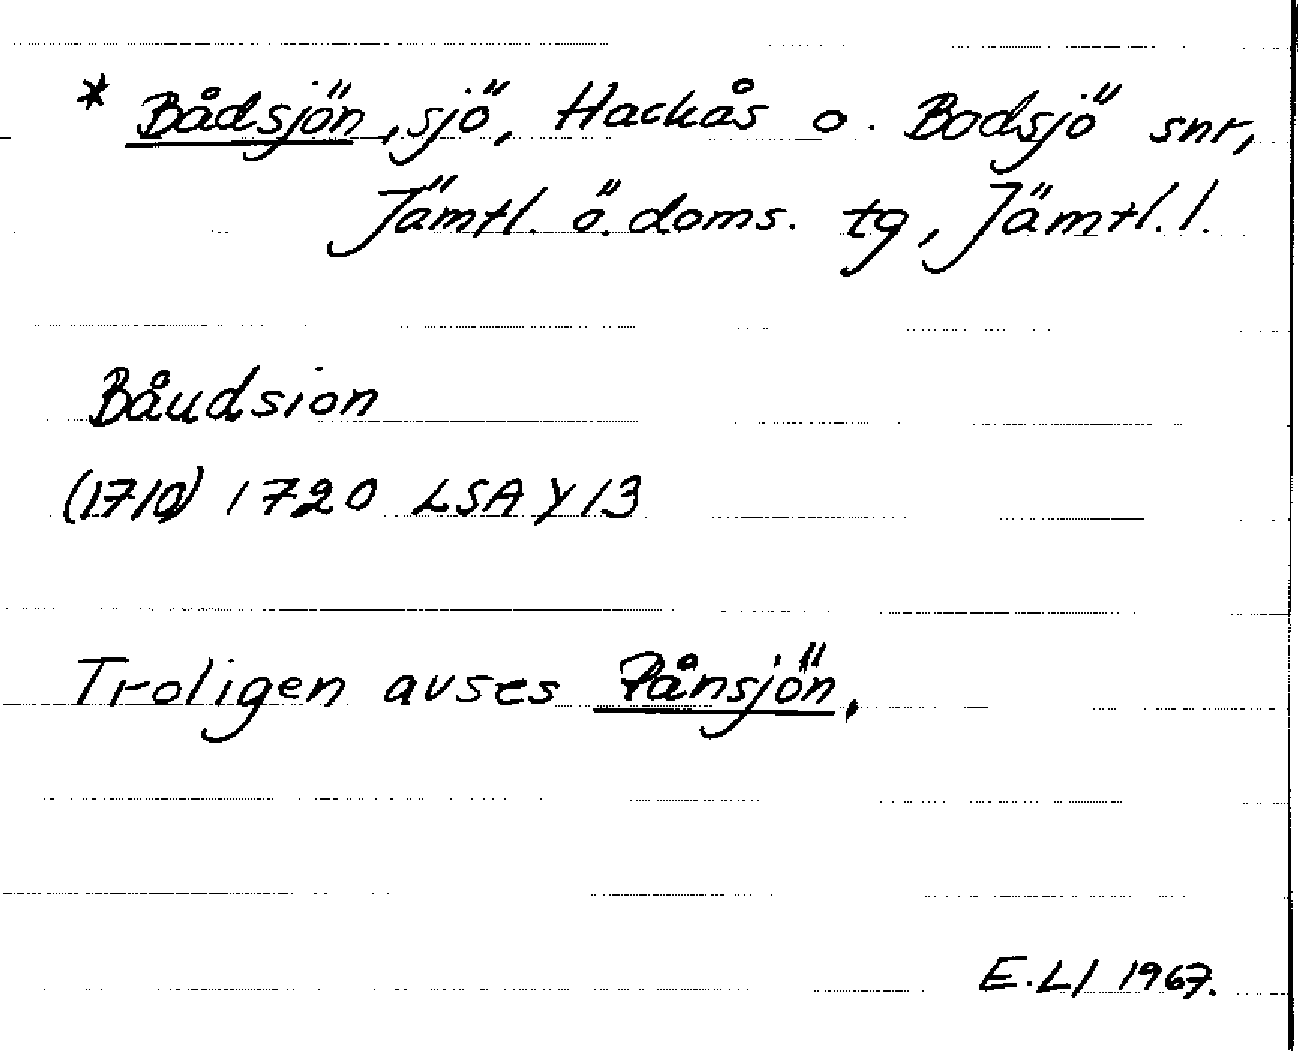 * Bådsjön, sjö, Hackås o. Bodsjö snr,
Jämtl. ö. doms. tg, Jämtl. l.
Båudsion
(1710) 1720 LSA Y13
Troligen avses Pånsjön.
E.Ll 1967.